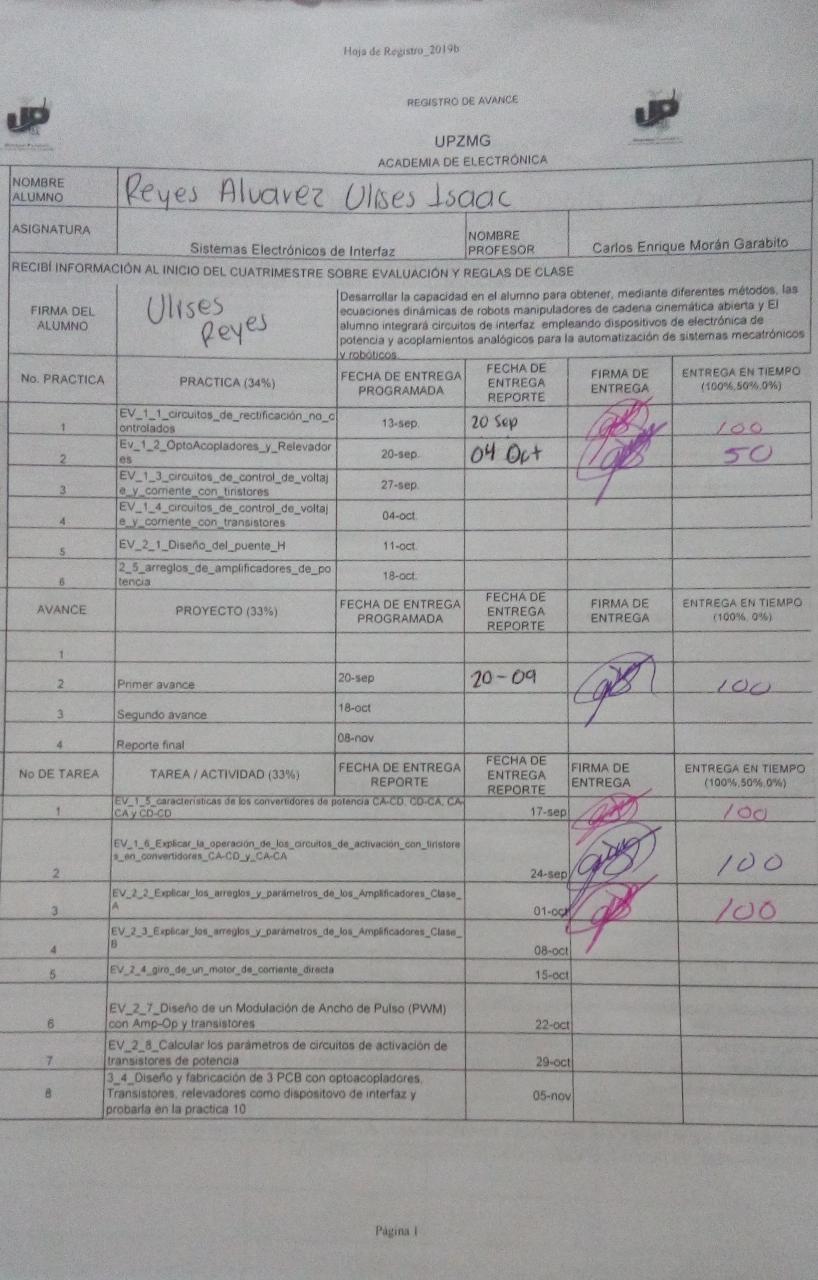 Hoja de Registro_2019b
REGISTRO DE AVANCE
UP
UP
UPZMG
ACADEMIA DE ELECTRÓNICA
NOMBRE ALUMNO
Reyes Alvarez Ulises Isaac
ASIGNATURA
Sistemas Electrónicos de Interfaz
NOMBRE PROFESOR
Carlos Enrique Morán Garabito
RECIBÍ INFORMACIÓN AL INICIO DEL CUATRIMESTRE SOBRE EVALUACIÓN Y REGLAS DE CLASE
FIRMA DEL ALUMNO
Ulises
Reyes
Desarrollar la capacidad en el alumno para obtener, mediante diferentes métodos, las
ecuaciones dinámicas de robots manipuladores de cadena cinemática abierta y El
alumno integrará circuitos de interfaz empleando dispositivos de electrónica de
potencia y acoplamientos analógicos para la automatización de sistemas mecatrónicos
y robóticos
No. PRACTICA PRACTICA (34%) FECHA DE ENTREGA PROGRAMADA FECHA DE ENTREGA REPORTE FIRMA DE ENTREGA ENTREGA EN TIEMPO (100%,50%,0%)
1 EV_1_1_circuitos_de_rectificación_no_controlados 13-sep. 20 Sep 100
2 Ev_1_2_OptoAcopladores_y_Relevadores 20-sep. 04 Oct 50
3 EV_1_3_circuitos_de_control_de_voltaje_y_corriente_con_tiristores 27-sep.
4 EV_1_4_circuitos_de_control_de_voltaje_y_corriente_con_transistores 04-oct.
5 EV_2_1_Diseño_del_puente_H 11-oct.
6 2_5_arreglos_de_amplificadores_de_potencia 18-oct.
AVANCE PROYECTO (33%) FECHA DE ENTREGA PROGRAMADA FECHA DE ENTREGA REPORTE FIRMA DE ENTREGA ENTREGA EN TIEMPO (100%, 0%)
1
2 Primer avance 20-sep 20-09 100
3 Segundo avance 18-oct
4 Reporte final 08-nov
No DE TAREA TAREA / ACTIVIDAD (33%) FECHA DE ENTREGA REPORTE FECHA DE ENTREGA REPORTE FIRMA DE ENTREGA ENTREGA EN TIEMPO (100%,50%,0%)
1 EV_1_5_características de los convertidores de potencia CA-CD, CD-CA, CA-CA y CD-CD 17-sep 100
2 EV_1_6_Explicar_la_operación_de_los_circuitos_de_activación_con_tiristores_en_convertidores_CA-CD_y_CA-CA 24-sep 100
3 EV_2_2_Explicar_los_arreglos_y_parámetros_de_los_Amplificadores_Clase_A 01-oct 100
4 EV_2_3_Explicar_los_arreglos_y_parámetros_de_los_Amplificadores_Clase_B 08-oct
5 EV_2_4_giro_de_un_motor_de_corriente_directa 15-oct
6 EV_2_7_Diseño de un Modulación de Ancho de Pulso (PWM) con Amp-Op y transistores 22-oct
7 EV_2_8_Calcular los parámetros de circuitos de activación de transistores de potencia 29-oct
8 3_4_Diseño y fabricación de 3 PCB con optoacopladores, Transistores, relevadores como dispositovo de interfaz y probarla en la practica 10 05-nov
Página 1